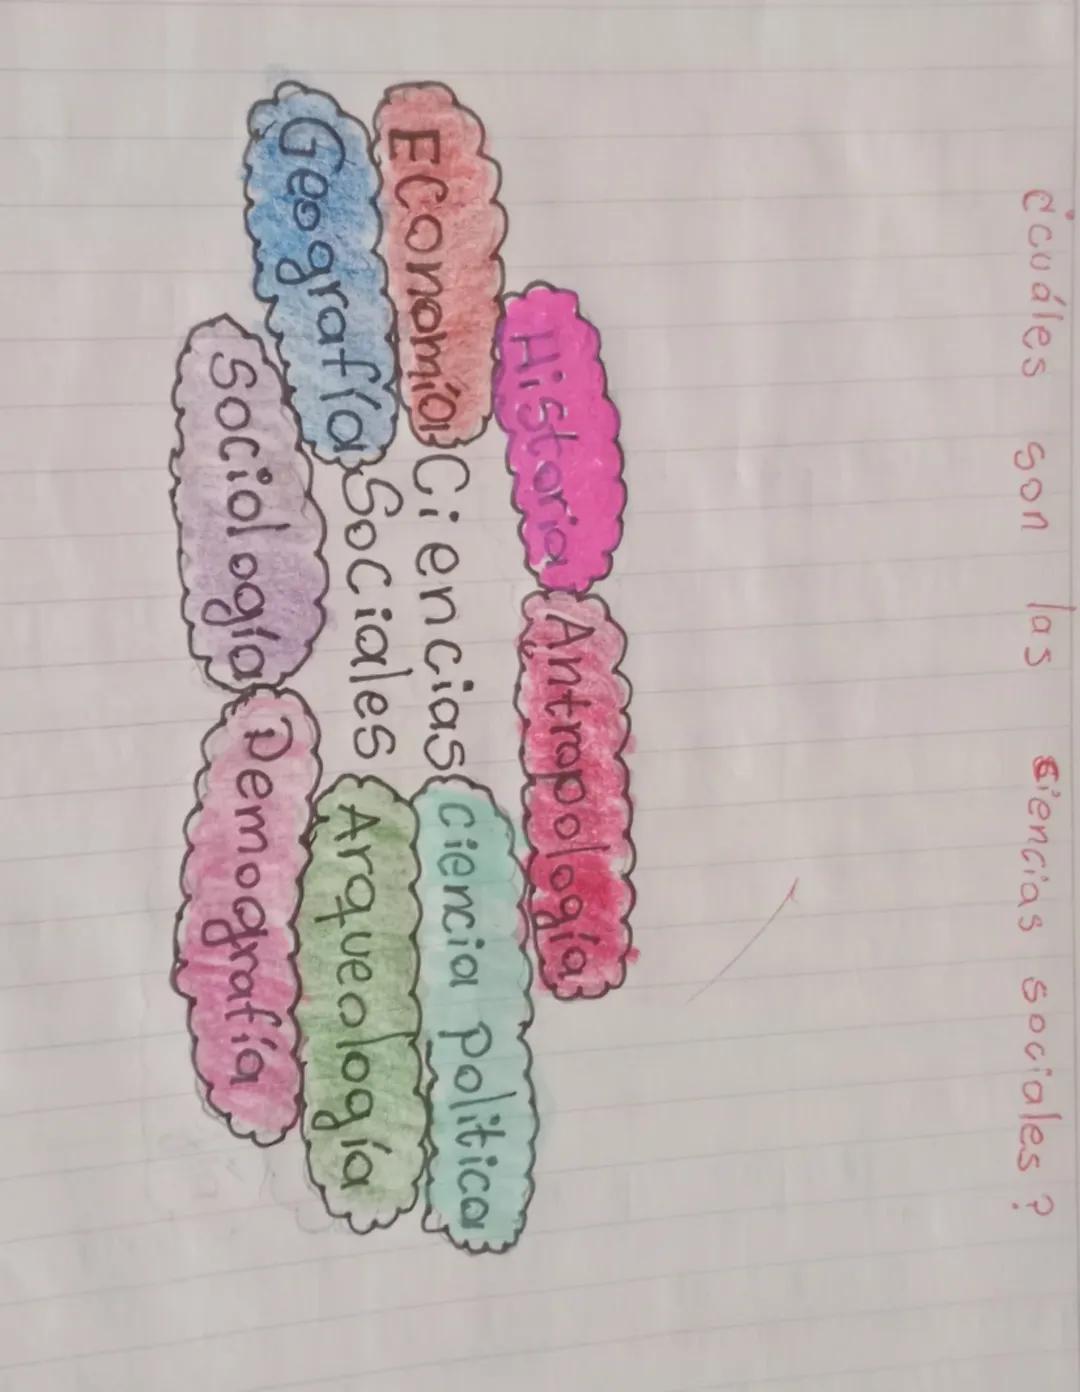 ¿cuáles son las ciencias sociales?
Historia
Antropología
Economía
Ciencia politica
Ciencias
Sociales
Geografía
Arqueología
Sociología
Demografía